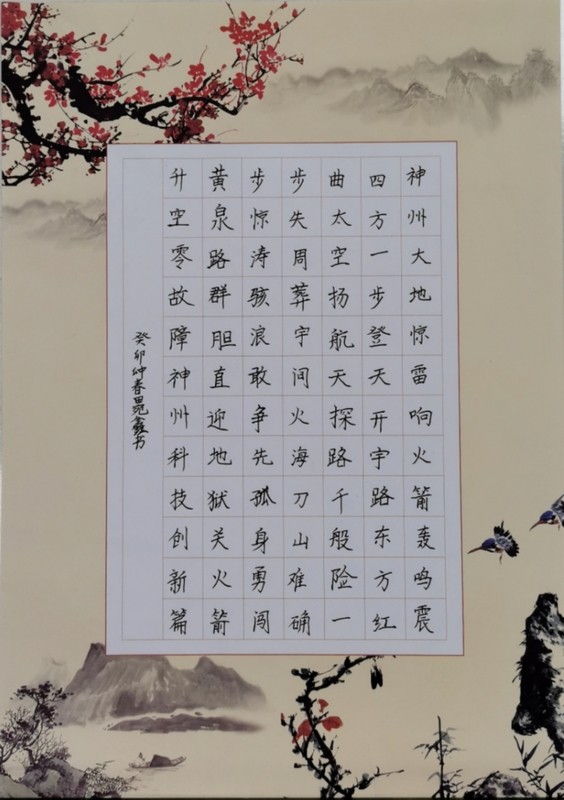 神州大地惊雷响火箭轰鸣震
四方一步登天开宇路东方红
曲太空扬航天探路千般险一
步失周葬宇间火海刀山难确
步惊涛骇浪敢争先孤身勇闯
黄泉路群胆直迎地狱关火箭
升空零故障神州科技创新篇
癸卯仲春思鑫书